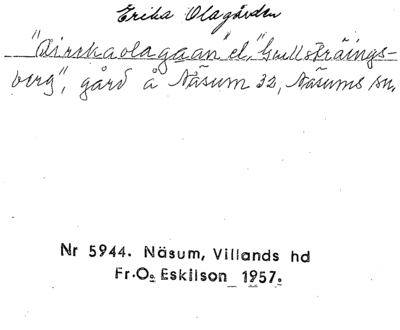 Erika Olagården
"Airrkaolagaan" el. "Gullstrãings-
berg", gård å Nãsum 32, Nãsums sn.
Nr 5944. Näsum, Villands hd
Fr.O. Eskilson 1957.